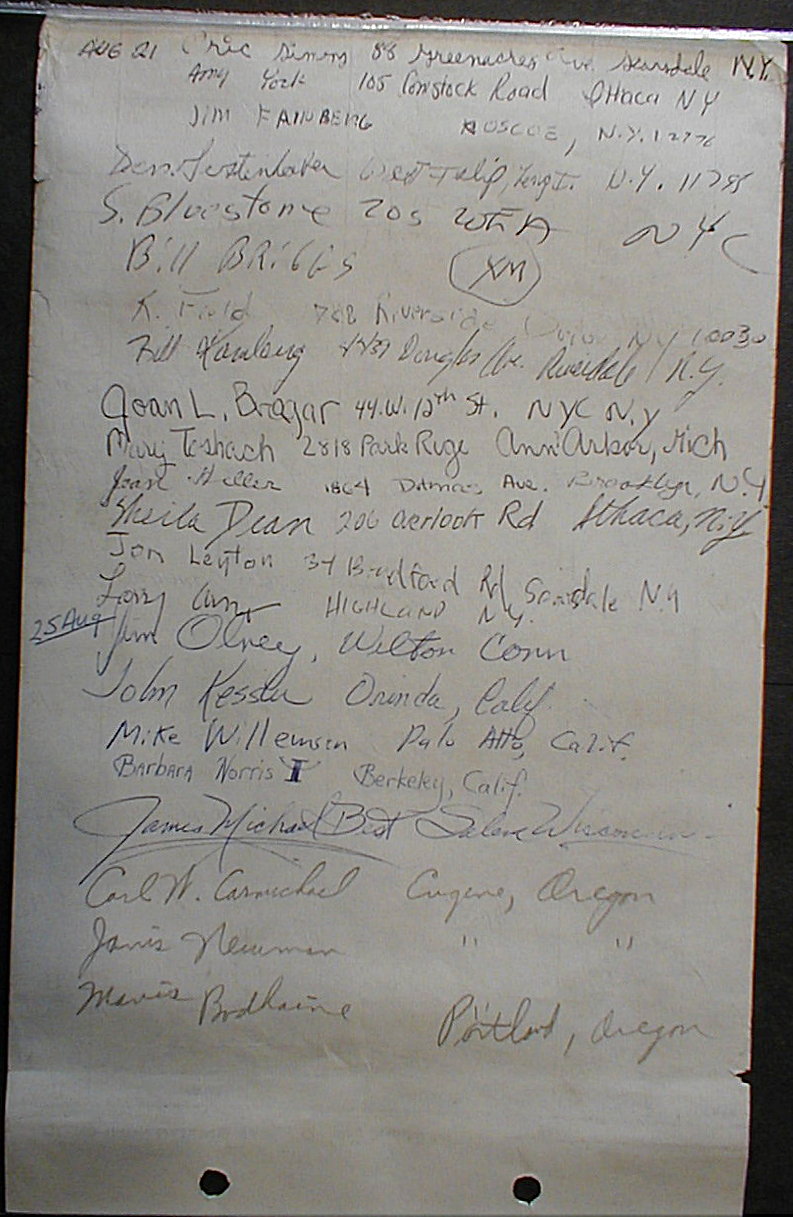 AUG 21 Eric Simon 88 Greenacres Ave. Scarsdale N.Y.
Amy York 105 Comstock Road Ithaca NY
JIM FAINBERG ROSCOE, N.Y. 12776
Don West Islip, Long I. N.Y. 11795
S. Bluestone 205 WEA NYC
Bill BRIGGS XM
K. Field 788 Riverside NY 10030
Bill Hamburg 4439 Douglas Ave. Riverdale N.Y.
Joan L. Bragar 44 W. 12th St. NYC N.Y
Mary Toshach 2818 Park Rige Ann Arbor, Mich
Joan Heller 1864 Ditmas Ave. Brooklyn, N.Y
Sheila Dean 206 Overlook Rd Ithaca, N.Y
Jon Leyton 34 Bradford Rd Scarsdale N.Y
Larry HIGHLAND N.Y.
25 Aug Jim Olney, Wilton Conn
John Kessler Orinda, Calif.
Mike Willemsen Palo Alto, Calif.
Barbara Norris Berkeley, Calif.
James Michael Best Salem Wisconsin
Carl W. Carmichael Eugene, Oregon
Janis Newman " "
Mavis Brodhaine Portland, Oregon